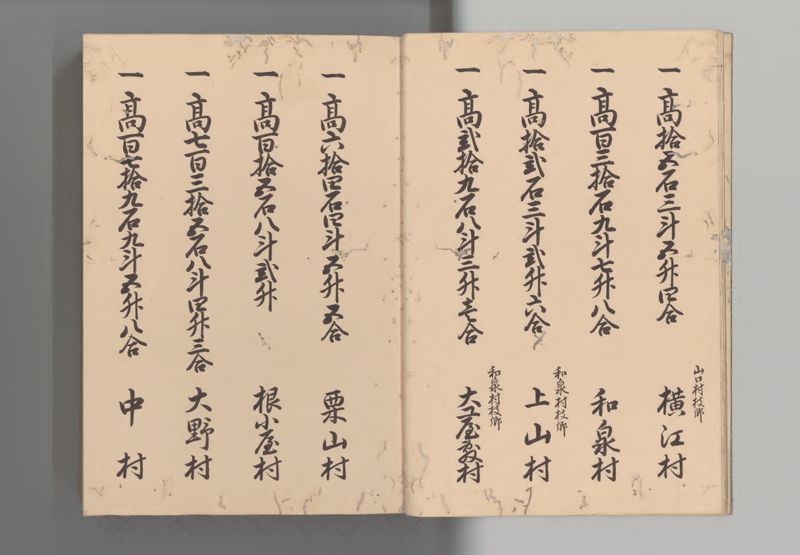 一高拾五石三斗五升四合
山口村枝郷
横江村
一高百三拾石九斗七升八合
和泉村
一高拾弐石三斗弐升六合
和泉村枝郷
上山村
一高弐拾九石八斗三升壱合
和泉村枝郷
一高六拾四石四斗五升五合
栗山村
一高百拾五石八斗弐升
根小屋村
一高七百三拾五石八斗四升三合
大野村
一高百七拾九石九斗五升八合
中村